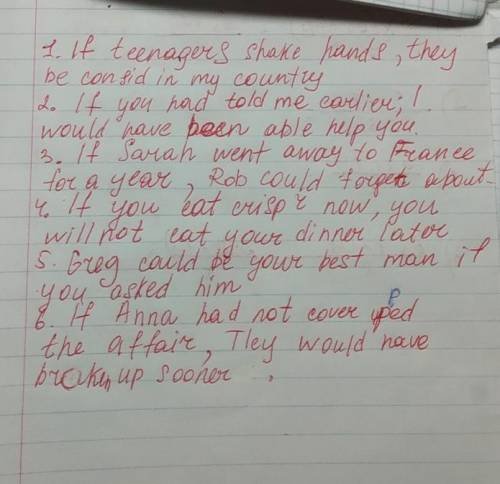 1. If teenagers shake hands, they
be consid in my country
2. If you had told me earlier, I
would have been able help you.
3. If Sarah went away to France
for a year, Rob could forget about
4. If you eat crisp's now, you
will not eat your dinner later
5. Greg could be your best man if
you asked him
6. If Anna had not cover uped
the affair, They would have
broken up sooner.